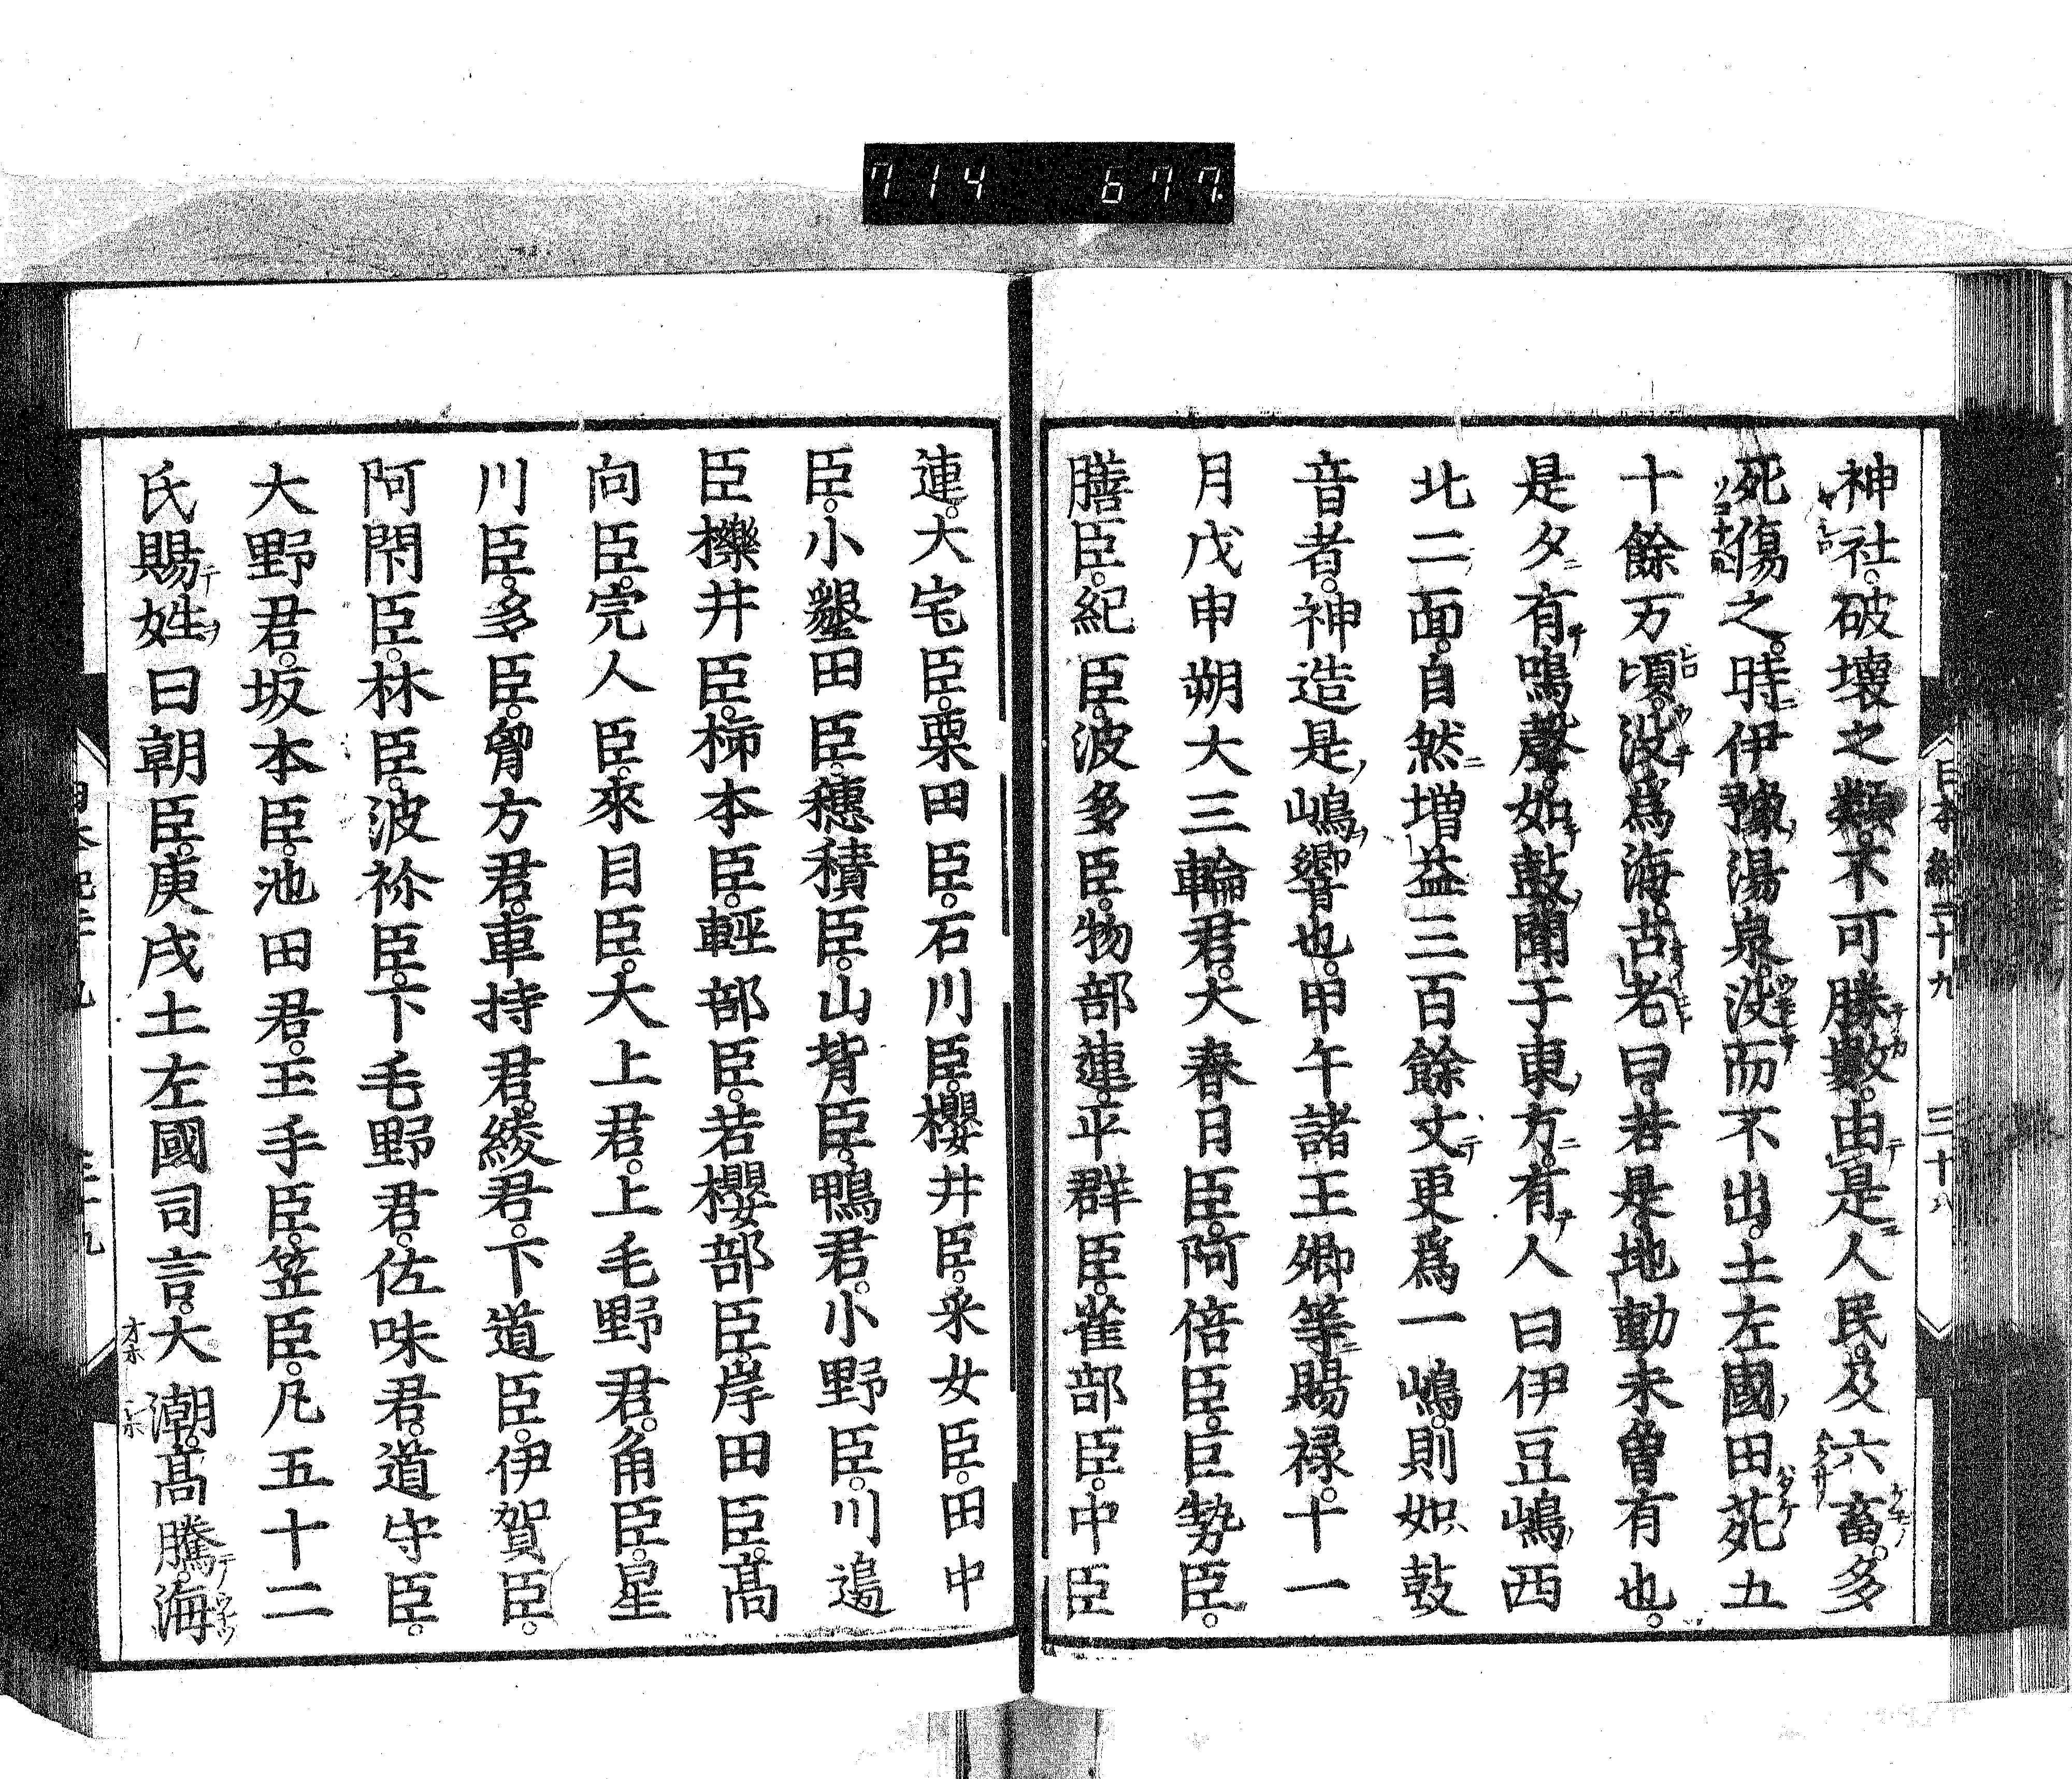 714 677.
日本紀二十九 三十八
神社破壊之類不可勝數由是人民及六畜多
死傷之時伊豫湯泉没而不出土左國田苑五
十餘万頃没爲海古老曰若是地動未曽有也
是夕有鳴聲如鼓聞于東方有人曰伊豆嶋西
北二面自然増益三百餘丈更爲一嶋則如鼓
音者神造是嶋響也甲午諸王卿等賜禄十一
月戊申朔大三輪君大春日臣阿倍臣巨勢臣
膳臣紀臣波多臣物部連平群臣雀部臣中臣
連大宅臣栗田臣石川臣櫻井臣采女臣田中
臣小墾田臣穂積臣山背臣鴨君小野臣川邉
臣櫟井臣柿本臣輕部臣若櫻部臣岸田臣髙
向臣宍人臣來目臣大上君上毛野君角臣星
川臣多臣胷方君車持君綾君下道臣伊賀臣
阿閇臣林臣波祢臣下毛野君佐味君道守臣
大野君坂本臣池田君玉手臣笠臣凡五十二
氏賜姓曰朝臣庚戌土左國司言大潮髙騰海